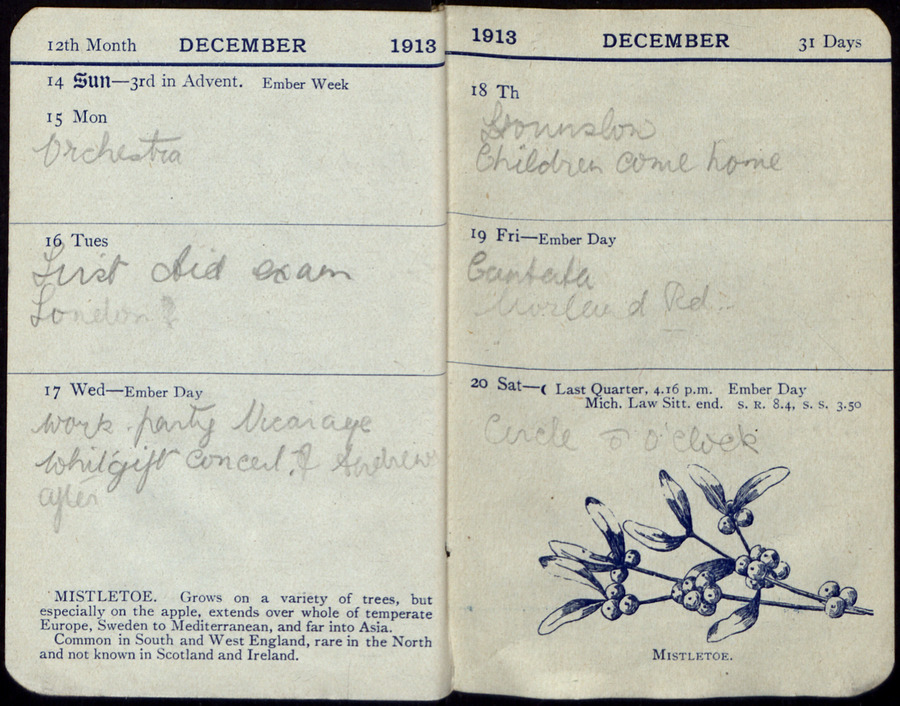 12th Month DECEMBER 1913
14 Sun—3rd in Advent. Ember Week
15 Mon
Orchestra
16 Tues
First Aid exam
London ?
17 Wed—Ember Day
work party Vicarage
Whitgift Concert, & Andrews
after
MISTLETOE. Grows on a variety of trees, but
especially on the apple, extends over whole of temperate
Europe, Sweden to Mediterranean, and far into Asia.
Common in South and West England, rare in the North
and not known in Scotland and Ireland.
1913 DECEMBER 31 Days
18 Th
Children come home
19 Fri—Ember Day
Cantata
Morland Rd.
20 Sat—☾ Last Quarter, 4.16 p.m. Ember Day
Mich. Law Sitt. end. S. R. 8.4, S. S. 3.50
Circle 5 O'clock
MISTLETOE.